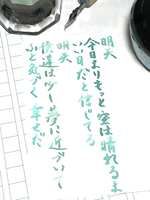 明天
今日よりもっと空は晴れるよ
いい日だと信じてる
明天
僕達は少し夢に近づいて
ふと気づく 幸せだ